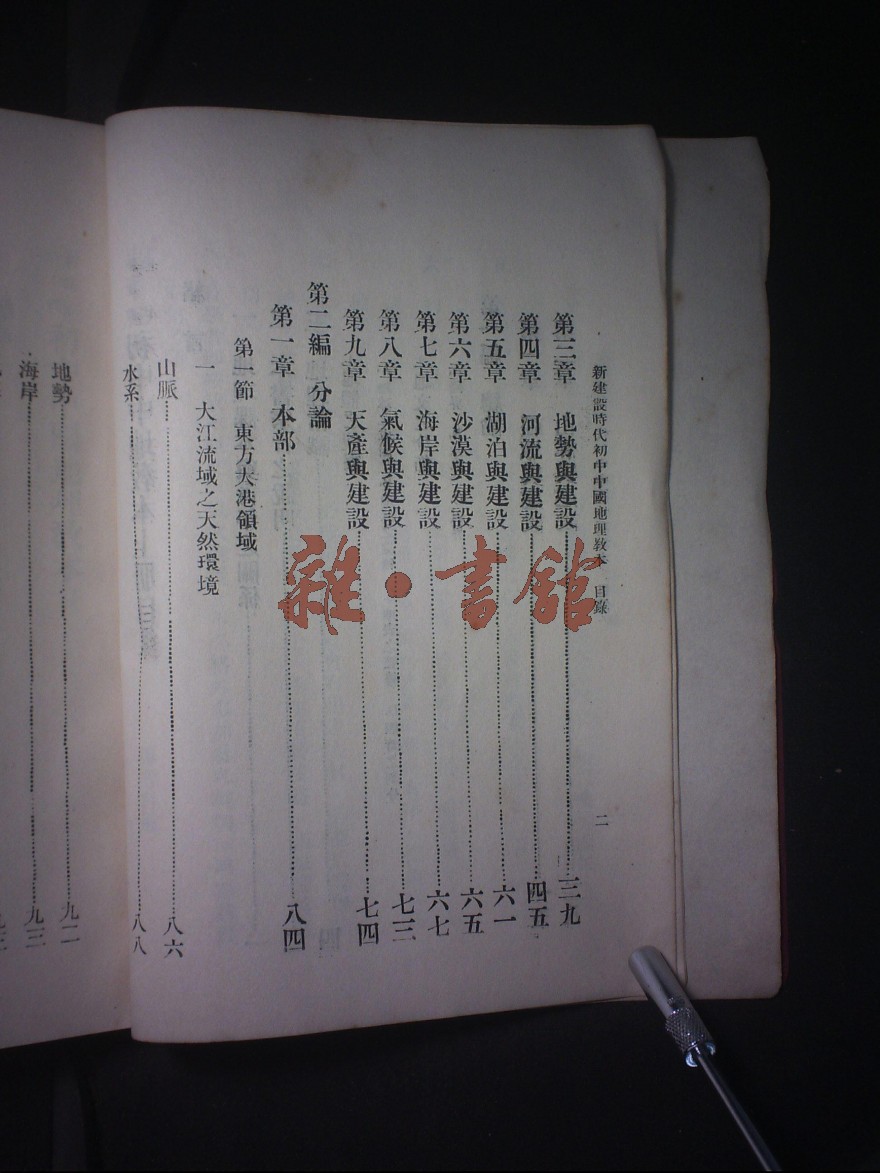 新建設時代初中中國地理教本 目錄
二
第三章 地勢與建設 三九
第四章 河流與建設 四五
第五章 湖泊與建設 六一
第六章 沙漠與建設 六五
第七章 海岸與建設 六七
第八章 氣候與建設 七三
第九章 天產與建設 七四
第二編 分論
第一章 本部 八四
第一節 東方大港領域
一 大江流域之天然環境
山脈 八六
水系 八八
地勢 九二
海岸 九三
雜·書館